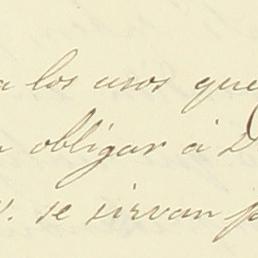 a los usos que
obligar á D
V. se sirvan